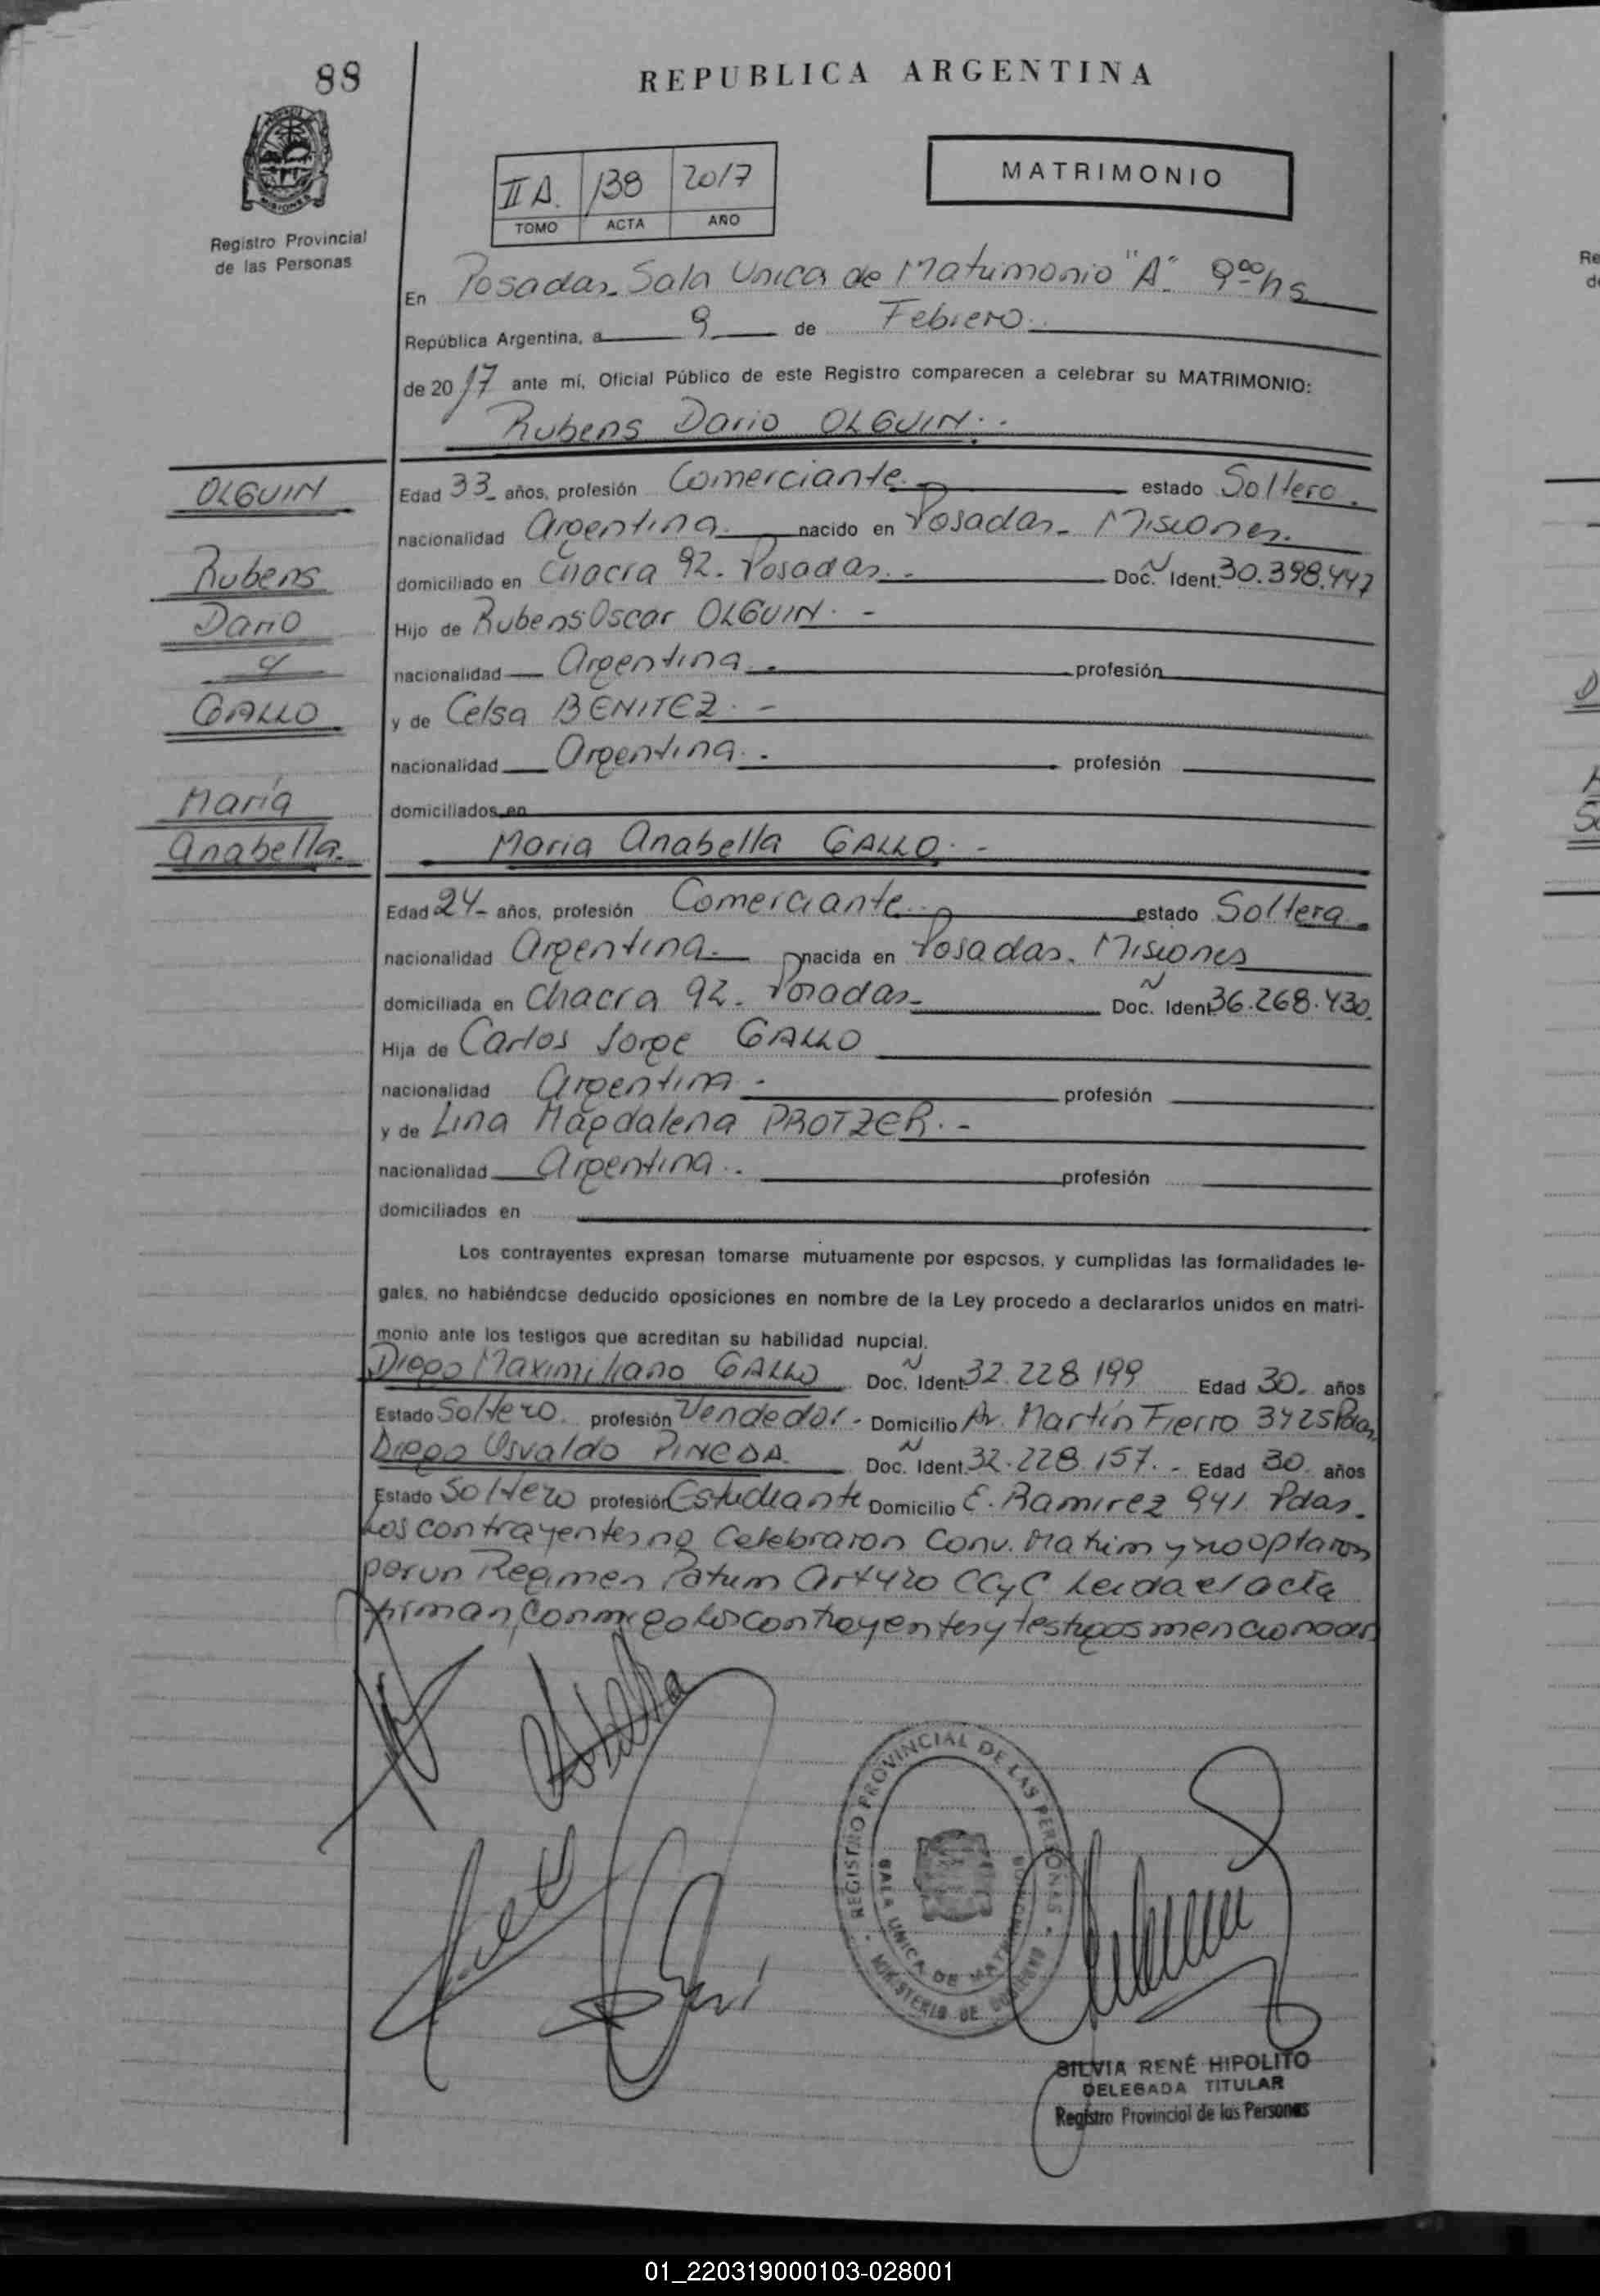 88
REPUBLICA ARGENTINA
MATRIMONIO
II A. 138 2017
TOMO ACTA AÑO
MISIONES
Registro Provincial
de las Personas
En Posadas. Sala Unica de Matrimonio "A" 9ºº hs
República Argentina, a 9 de Febrero
de 2017 ante mí, Oficial Público de este Registro comparecen a celebrar su MATRIMONIO:
Rubens Dario OLGUIN
OLGUIN
Rubens
Dario
y
GALLO
María
Anabella
Edad 33 años, profesión Comerciante estado Soltero
nacionalidad Argentina nacido en Posadas - Misiones
domiciliado en Chacra 92 - Posadas Doc. N Ident. 30.398.447
Hijo de Rubens Oscar OLGUIN
nacionalidad Argentina profesión
y de Celsa BENITEZ
nacionalidad Argentina profesión
domiciliados en
Maria Anabella GALLO
Edad 24 años, profesión Comerciante estado Soltera
nacionalidad Argentina nacida en Posadas. Misiones
domiciliada en Chacra 92 - Posadas Doc. N Ident. 36.268.430
Hija de Carlos Jorge GALLO
nacionalidad Argentina profesión
y de Lina Magdalena PROTZER
nacionalidad Argentina profesión
domiciliados en
Los contrayentes expresan tomarse mutuamente por esposos, y cumplidas las formalidades le-
gales, no habiéndose deducido oposiciones en nombre de la Ley procedo a declararlos unidos en matri-
monio ante los testigos que acreditan su habilidad nupcial.
Diego Maximiliano GALLO Doc. N Ident. 32.228.199 Edad 30 años
Estado Soltero profesión Vendedor - Domicilio Av. Martín Fierro 3425 Pdas
Diego Osvaldo PINEDA Doc. N Ident. 32.228.157 - Edad 30 años
Estado Soltero profesión Estudiante Domicilio E. Ramirez 941 Pdas.
Los contrayentes no Celebraron Conv. Matrim y no optaron
por un Regimen Patrim Art 420 CCyC Leida el acta
firman conmigo los contrayentes y testigos mencionados
REGISTRO PROVINCIAL DE LAS PERSONAS
SALA UNICA DE MATRIMONIO
MINISTERIO DE GOBIERNO
SILVIA RENÉ HIPOLITO
DELEGADA TITULAR
Registro Provincial de las Personas
01_220319000103-028001